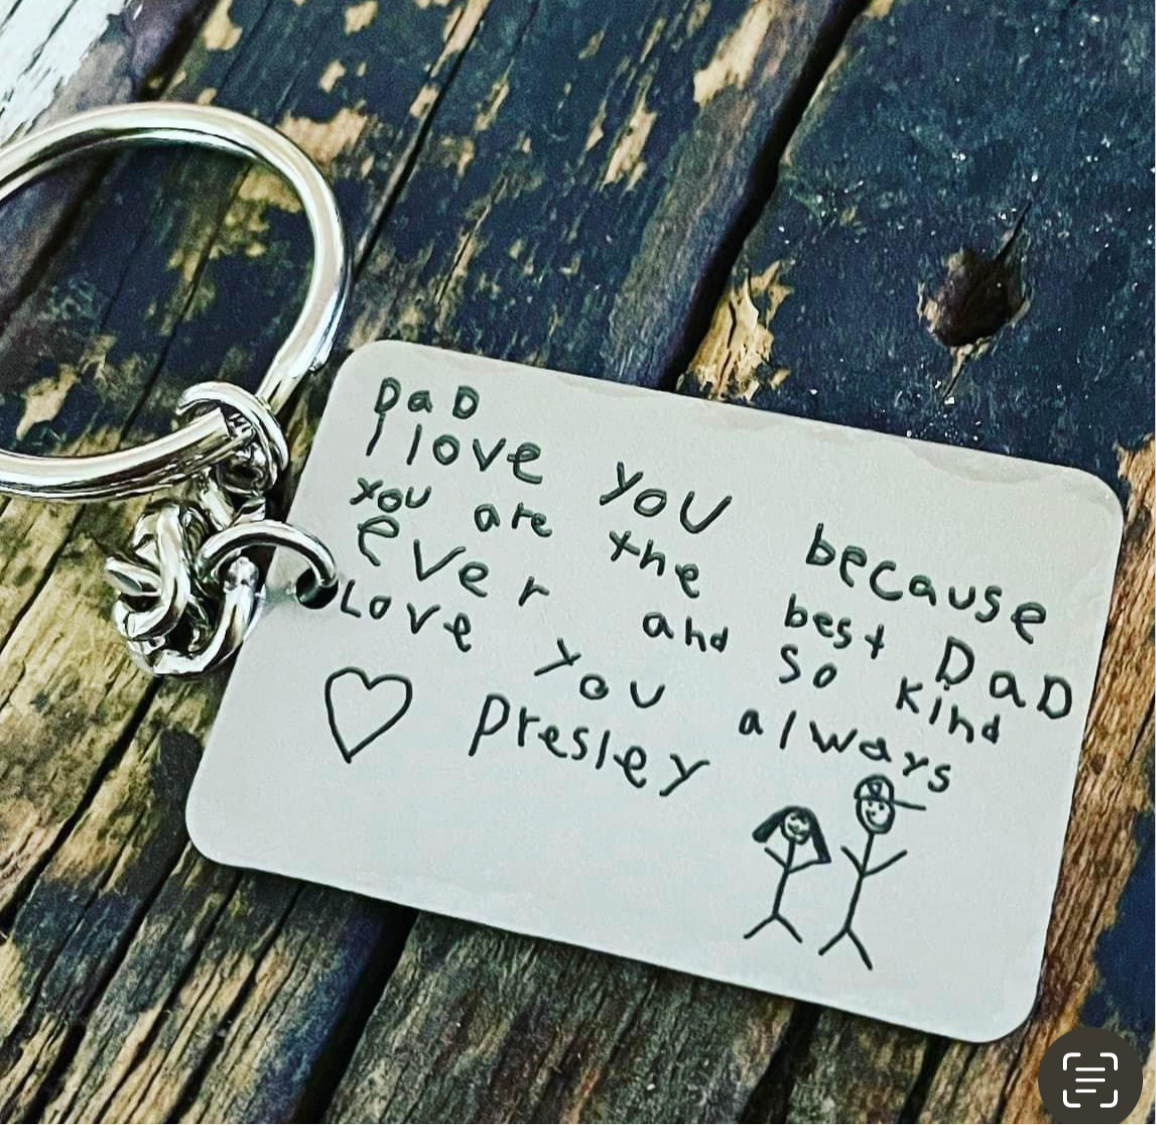 DaD
I love you because
you are the best DaD
ever and so kind
Love you always
presley